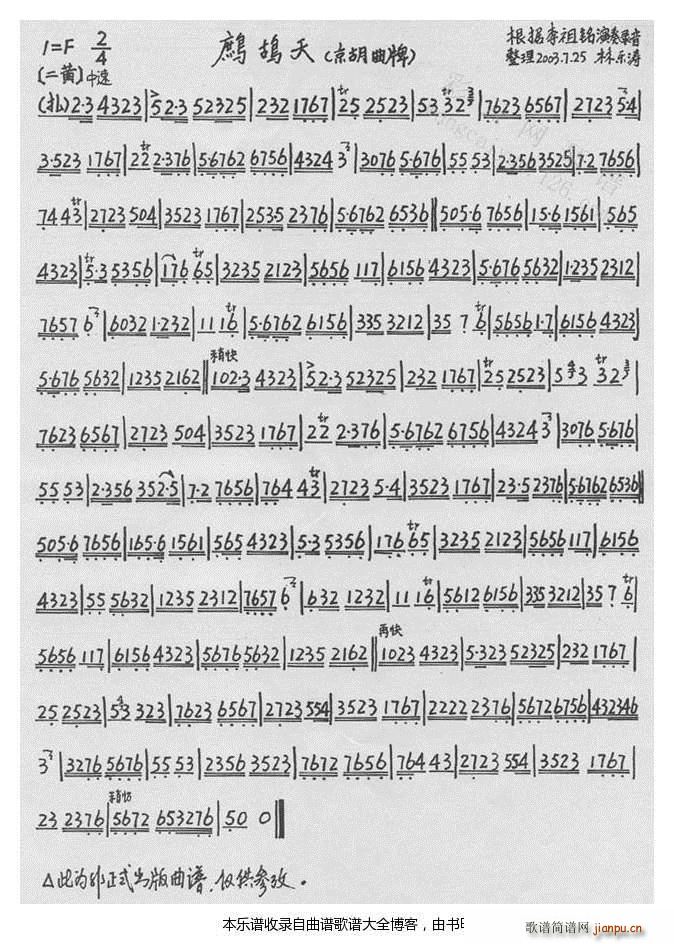 1=F 2/4 鹧鸪天(京胡曲牌) 根据李祖铭演奏录音
(二黄)中速 整理2003.7.25 林乐涛
(扎)2·3 4323|52·3 52325|232 1767|25 2523|53 32|7623 6567|2723 5·4|
3·523 1767|22 2·376|5·6762 6756|4324 3|3076 5·676|55 53|2·356 3525|7·2 7656|
744 43|2723 504|3523 1767|2535 2376|5·6762 6536‖505·6 7656|15·6 1561|565
4323|5·3 5356|176 65|3235 2123|5656 117|6156 4323|5·676 5632|1·235 2312|
7657 6|6032 1·232|11 16|5·6762 6156|335 3212|35 7 6|5656 1·7|6156 4323|
稍快
5·676 5632|1235 2162‖102·3 4323|52·3 52325|232 1767|25 2523|5 3 32|
7623 6567|2723 504|3523 1767|22 2·376|5·6762 6756|4324 3|3076 5·676|
55 53|2·356 352·5|7·2 7656|764 43|2723 5·4|3523 1767|23·5 2376|5·6762 6536‖
505·6 7656|165·6 1561|565 4323|5·3 5356|176 65|3235 2123|5656 117|6156
4323|55 5632|1235 2312|7657 6|632 1232|11 16|5612 6156|335 3212|35 7 6|
再快
5656 117|6156 4323|5676 5632|1235 2162‖1023 4323|5·323 52325|232 1767|
25 2523|53 323|7623 6567|2723 554|3523 1767|2222 2376|5672 6756|432346
3|3276 5676|55 53|2356 3523|7672 7656|764 43|2723 554|3523 1767|
23 2376|5672 653276|50 0‖
△此为非正式出版曲谱,仅供参改。
本乐谱收录自曲谱歌谱大全博客，由书
歌谱简谱网
jianpu.cn